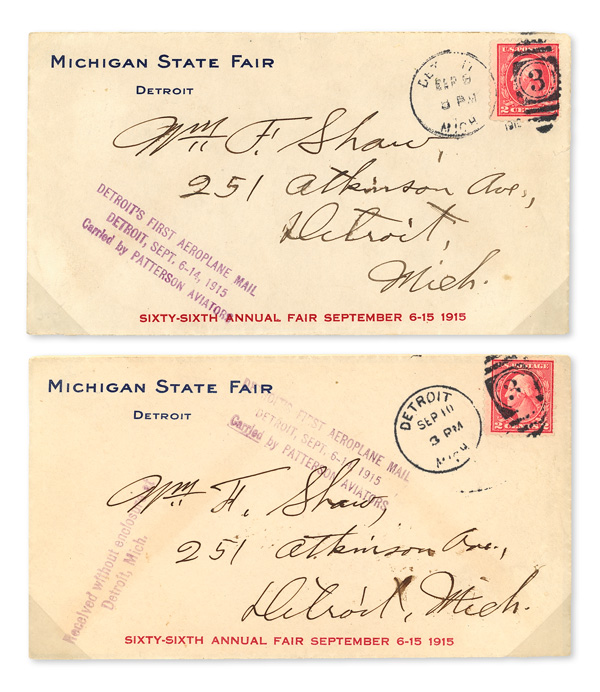 MICHIGAN STATE FAIR
DETROIT
DET
SEP
3 PM
MICH
1915
3
U.S. POSTAGE
2 CENTS 2
Wm. F. Shaw,
251 Atkinson Ave,
Detroit,
Mich.
DETROIT'S FIRST AEROPLANE MAIL
DETROIT, SEPT. 6-14, 1915
Carried by PATTERSON AVIATORS
SIXTY-SIXTH ANNUAL FAIR SEPTEMBER 6-15 1915
MICHIGAN STATE FAIR
DETROIT
DETROIT
SEP 10
3 PM
MICH
3
U.S. POSTAGE
2 CENTS 2
FIRST AEROPLANE MAIL
DETROIT, SEPT. 6-14, 1915
Carried by PATTERSON AVIATORS
Wm. F. Shaw,
251 Atkinson Ave.,
Detroit, Mich.
Received without enclosure at
Detroit, Mich.
SIXTY-SIXTH ANNUAL FAIR SEPTEMBER 6-15 1915